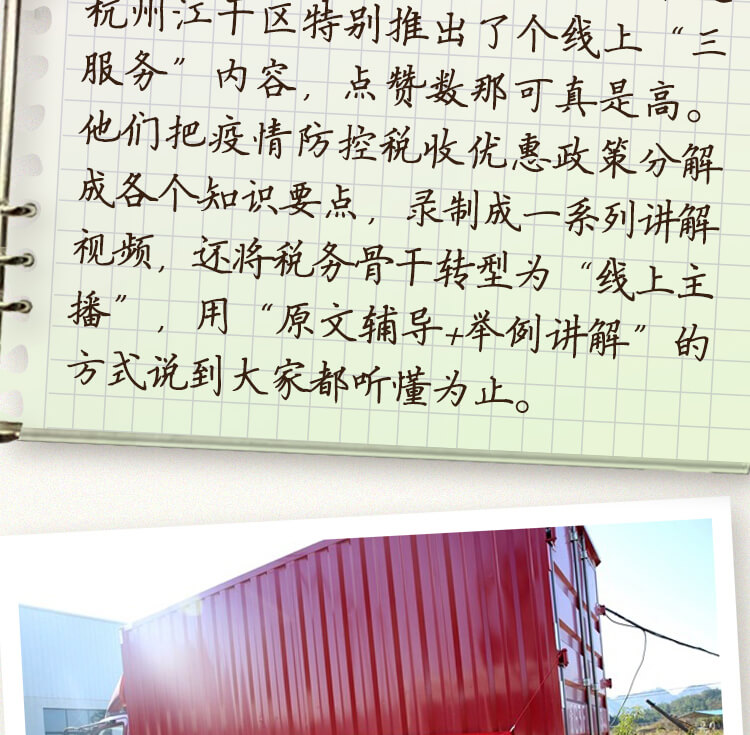 杭州江干区特别推出了个线上“三
服务”内容，点赞数那可真是高。
他们把疫情防控税收优惠政策分解
成各个知识要点，录制成一系列讲解
视频，还将税务骨干转型为“线上主
播”，用“原文辅导+举例讲解”的
方式说到大家都听懂为止。